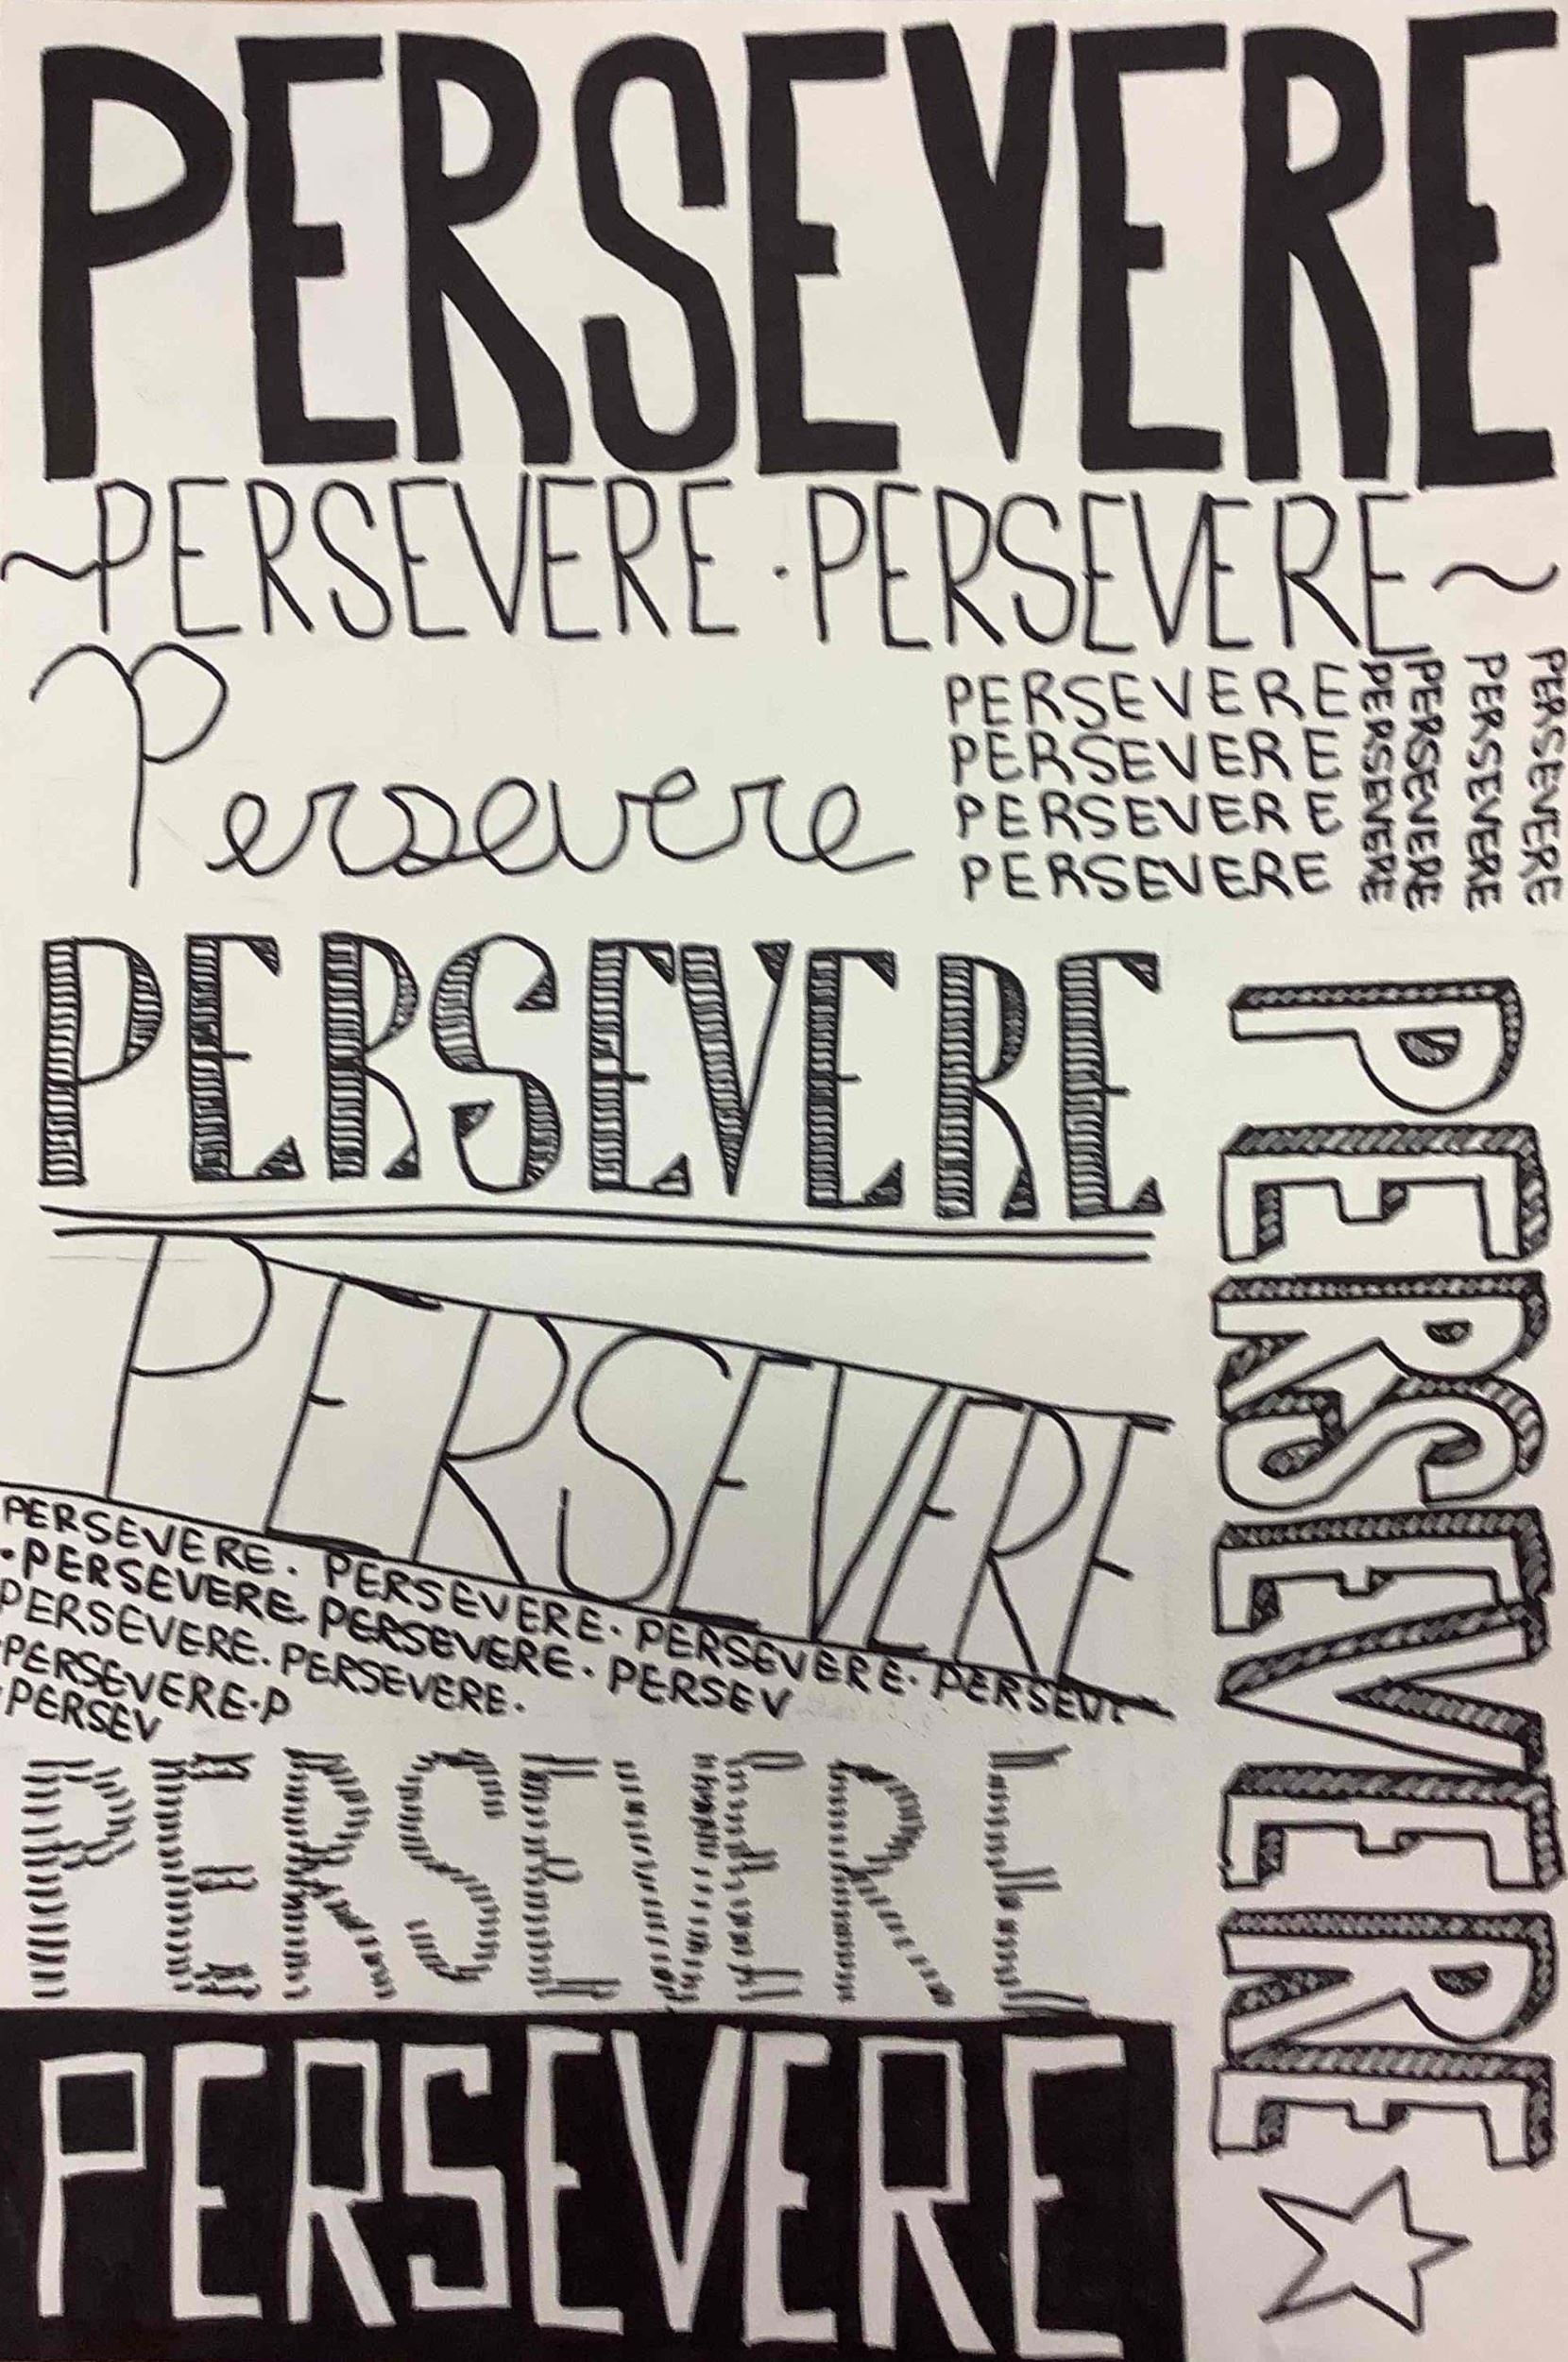 PERSEVERE
~PERSEVERE · PERSEVERE~
Persevere
PERSEVERE
PERSEVERE
PERSEVERE
PERSEVERE
PERSEVERE
PERSEVERE
PERSEVERE
PERSEVERE
PERSEVERE
PERSEVERE
PERSEVERE
PERSEVERE. PERSEVERE. PERSEVERE. PERSEV
·PERSEVERE. PERSEVERE. PERSEV
PERSEVERE. PERSEVERE.
·PERSEVERE·P
·PERSEV
PERSEVERE
PERSEVERE